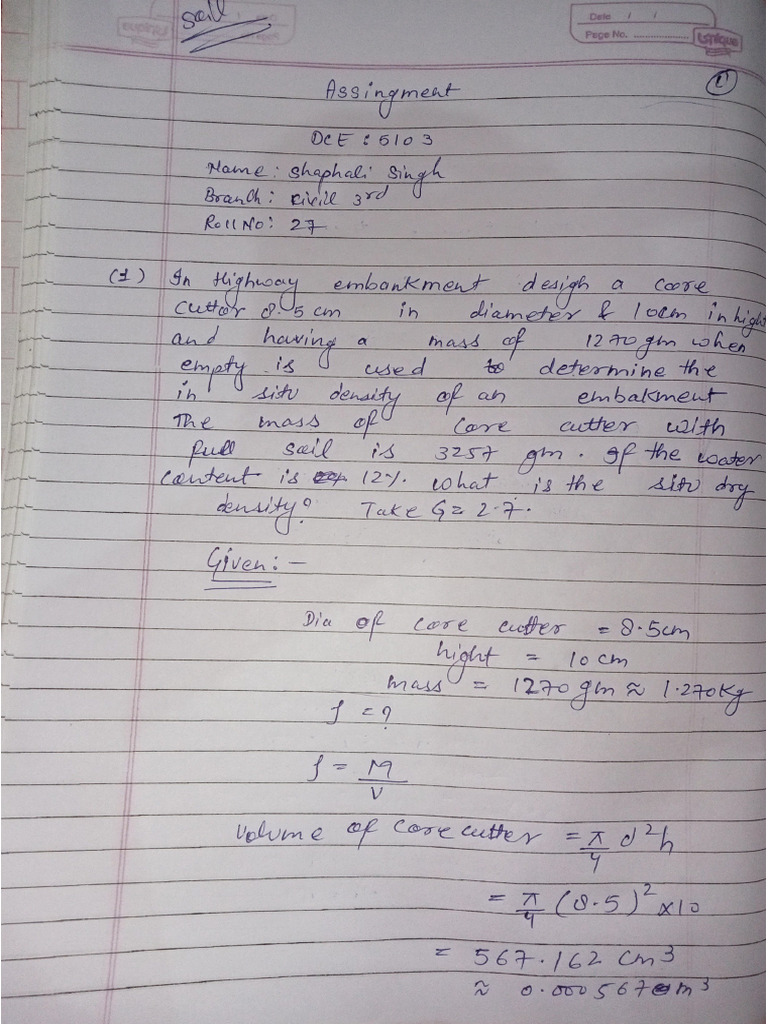 Soil
Date / /
Page No.
Unique
(1)
Assingment
DCE : 5103
Name: Shaphali Singh
Branch: Civill 3rd
Roll No: 27
(1) In Highway embankment desigh a coore
cuttor 8.5 cm in diameter & 10cm in hight
and having a mass of 1270 gm when
empty is used to determine the
in situ density of an embakment
The mass of core cutter with
full soil is 3257 gm. If the water
content is 12%. what is the situ dry
density? Take G = 2.7.
Given:-
Dia of core cutter = 8.5cm
hight = 10 cm
mass = 1270 gm ≈ 1.270Kg
ρ = ?
ρ = M/V
Volume of core cutter = π/4 d²h
= π/4 (8.5)² × 10
= 567.162 cm³
≈ 0.000567 m³